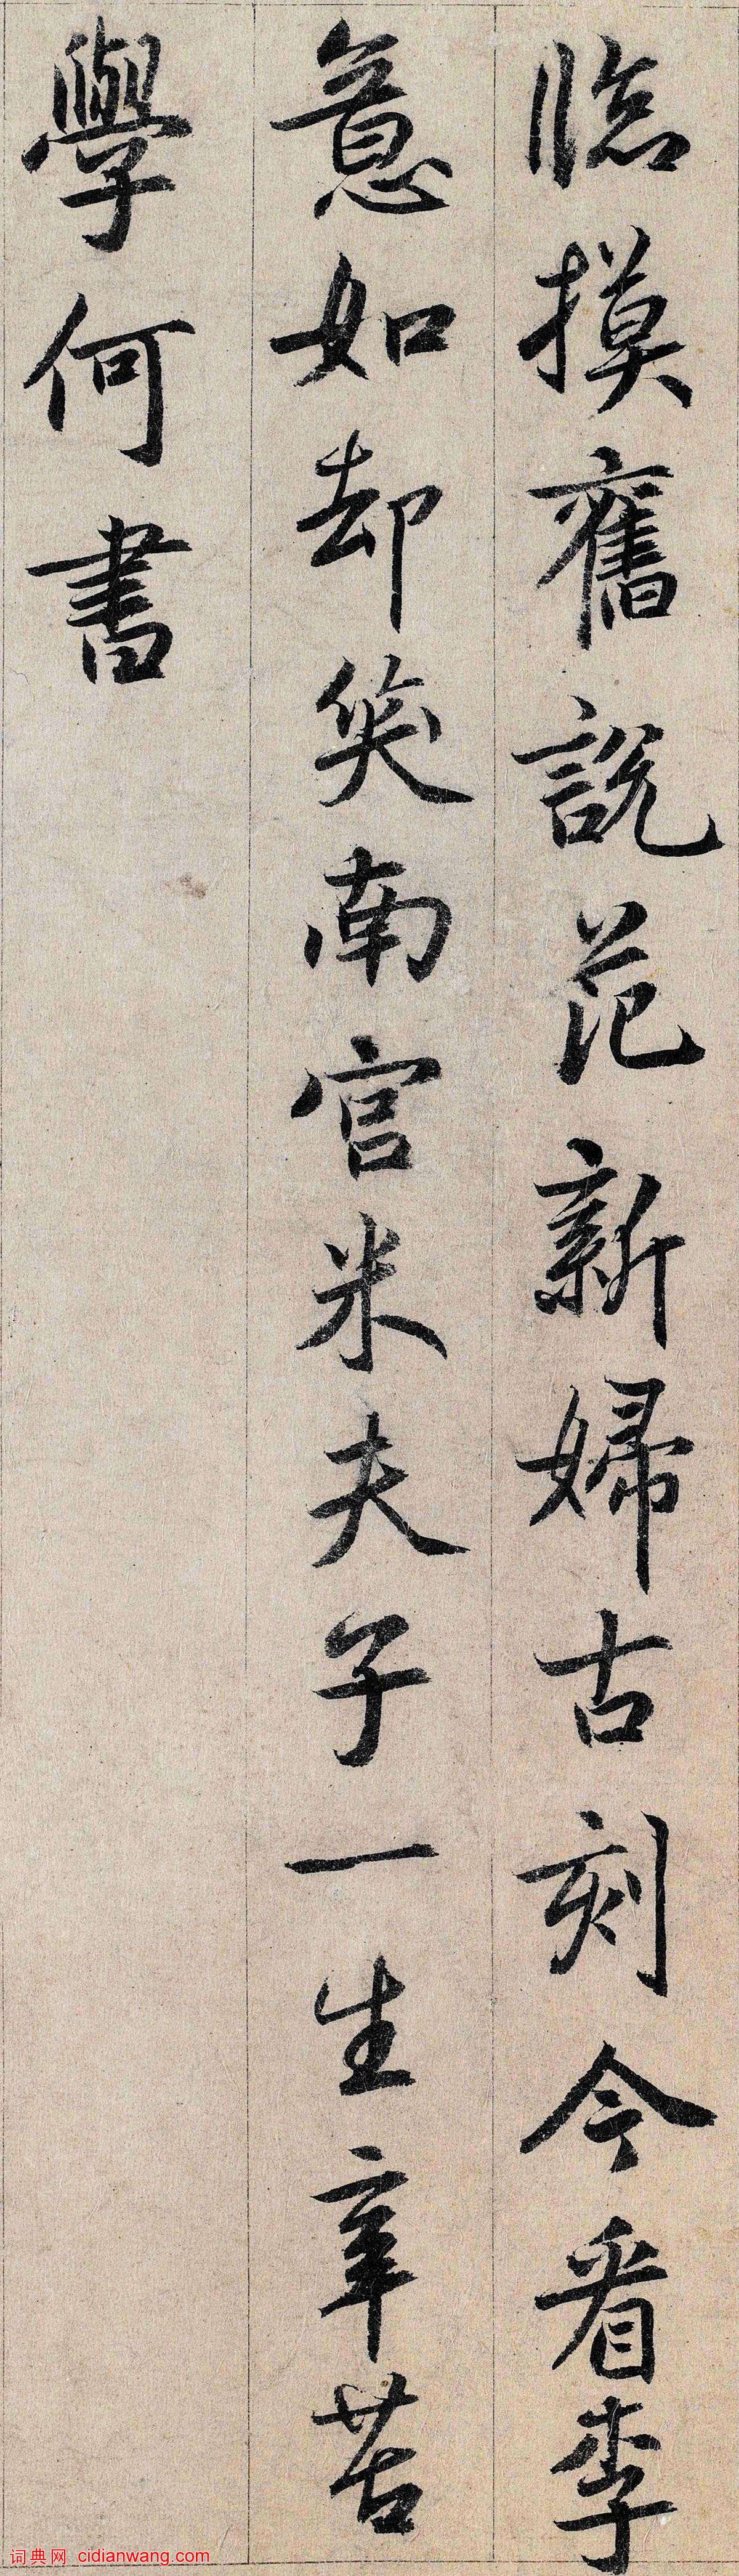 臨摸舊說范新婦古刻今看李
意如却笑南宮米夫子一生辛苦
學何書
词典网 cidianwang.com